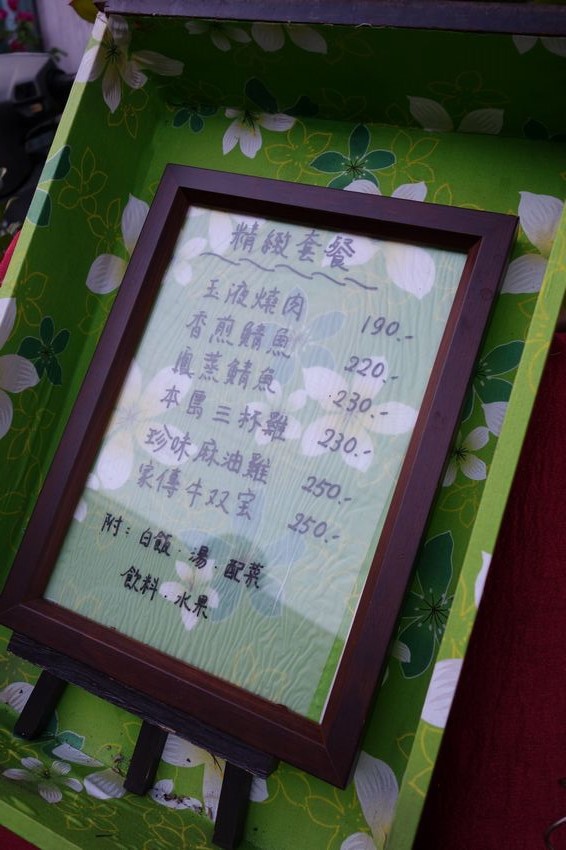 精緻套餐
玉液燒肉 190.-
香煎鯖魚 220.-
鳳蒸鯖魚 230.-
本島三杯雞 230.-
珍味麻油雞 250.-
家傳牛双宝 250.-
附：白飯．湯．配菜
飲料．水果